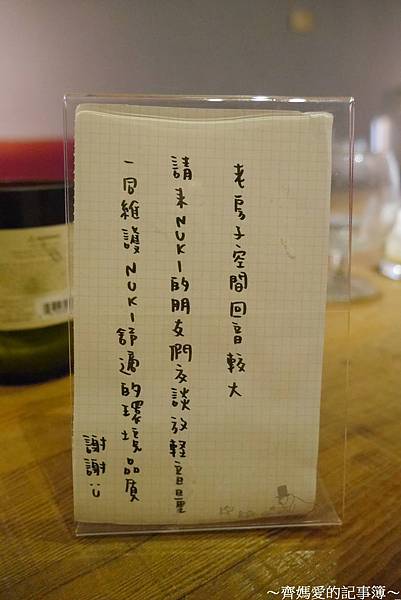 老房子空間回音較大
請來NUKI的朋友們交談放輕音量
一同維護NUKI舒適的環境品質
謝謝:)
～齊媽愛的記事簿～